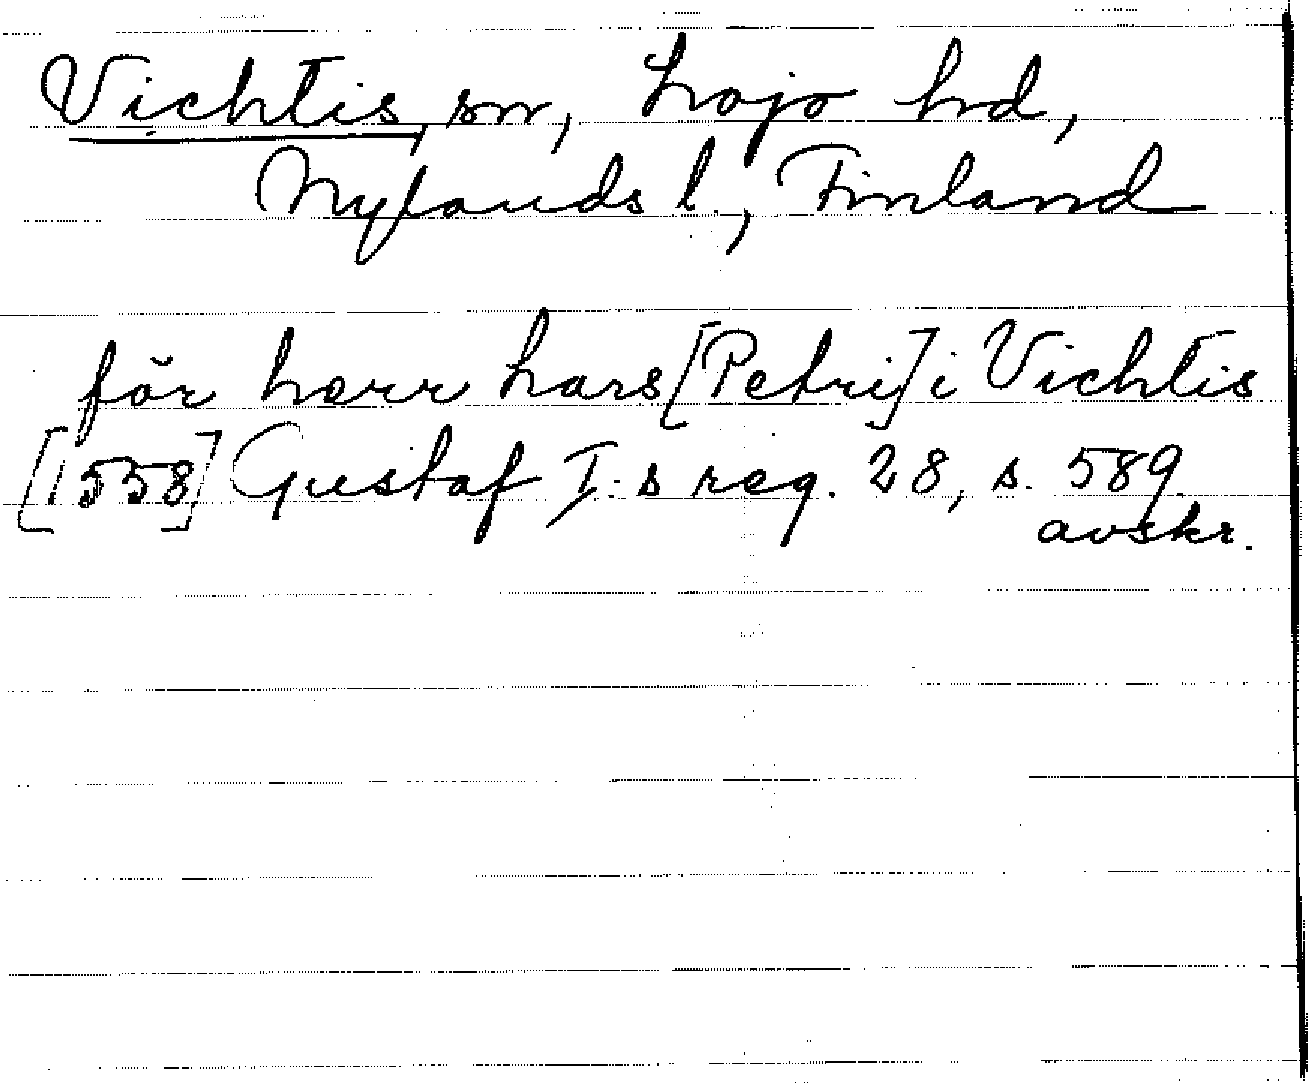 Vichtis, sn, Lojo hd,
Nylands l., Finland
för herr Lars [Petri] i Vichtis
[1558] Gustaf I:s reg. 28, s. 589.
avskr.